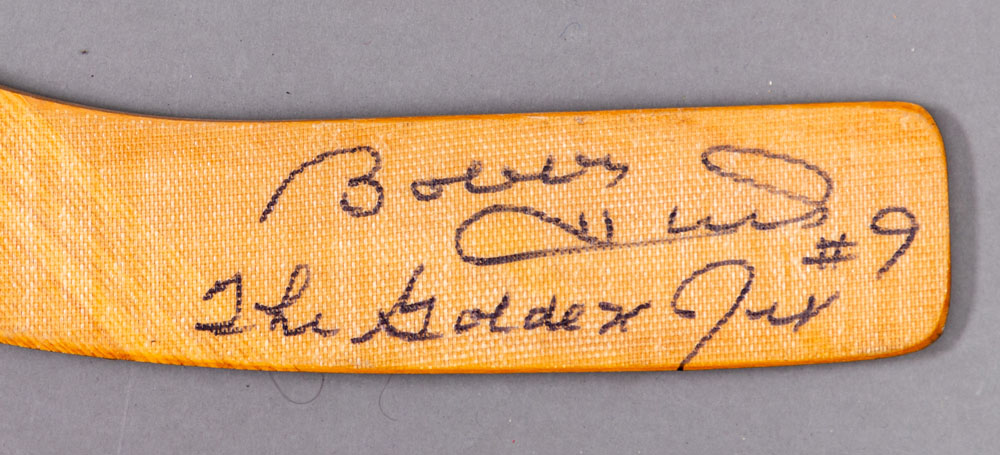 Bobby Hull #9
The Golden Jet